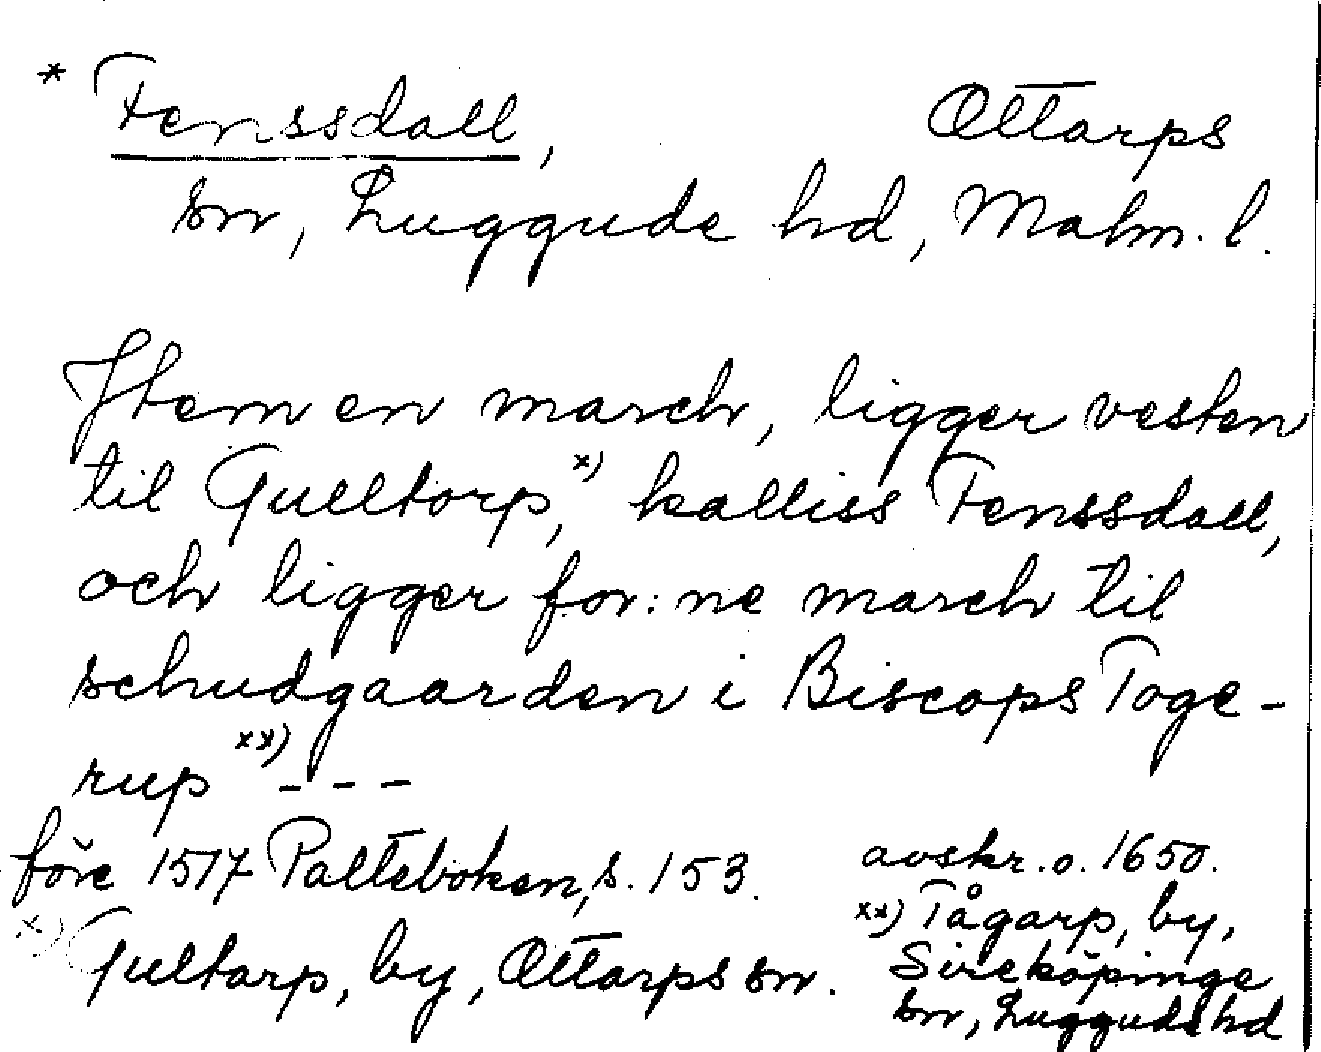 * Fenssdall, Ottarps
sn, Luggude hd, Malm. l.
Item en march, ligger vesten
til Gulltorp,x) kalliss Fenssdall,
och ligger for:ne march til
schudgaarden i Biscops Toge-
rup xx) - - -
före 1517 Palteboken, s. 153. avskr. o. 1650.
x) Gultarp, by, Ottarps sn.
xx) Tågarp, by,
Sireköpinge
sn, Luggude hd